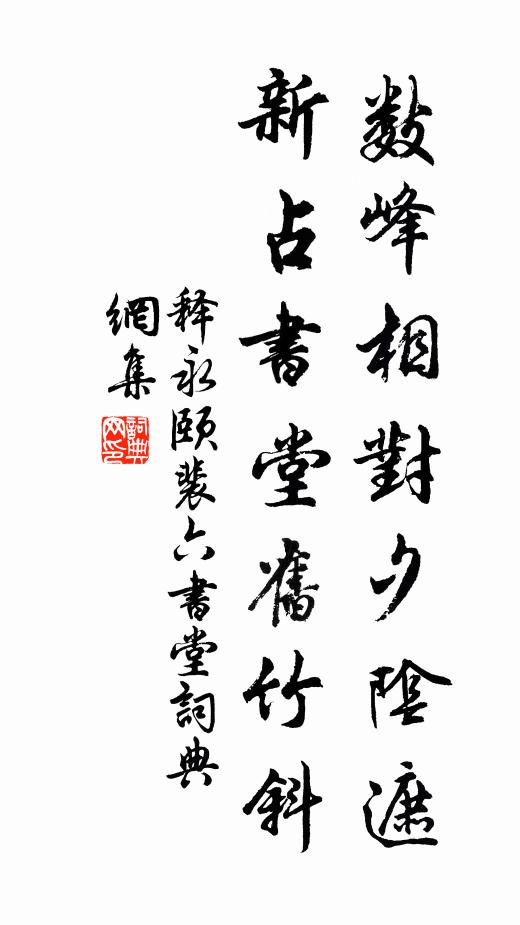 數峰相對夕陰遮
新占書堂舊竹斜
释永頤裴六書堂詞典
網集
詞典網印